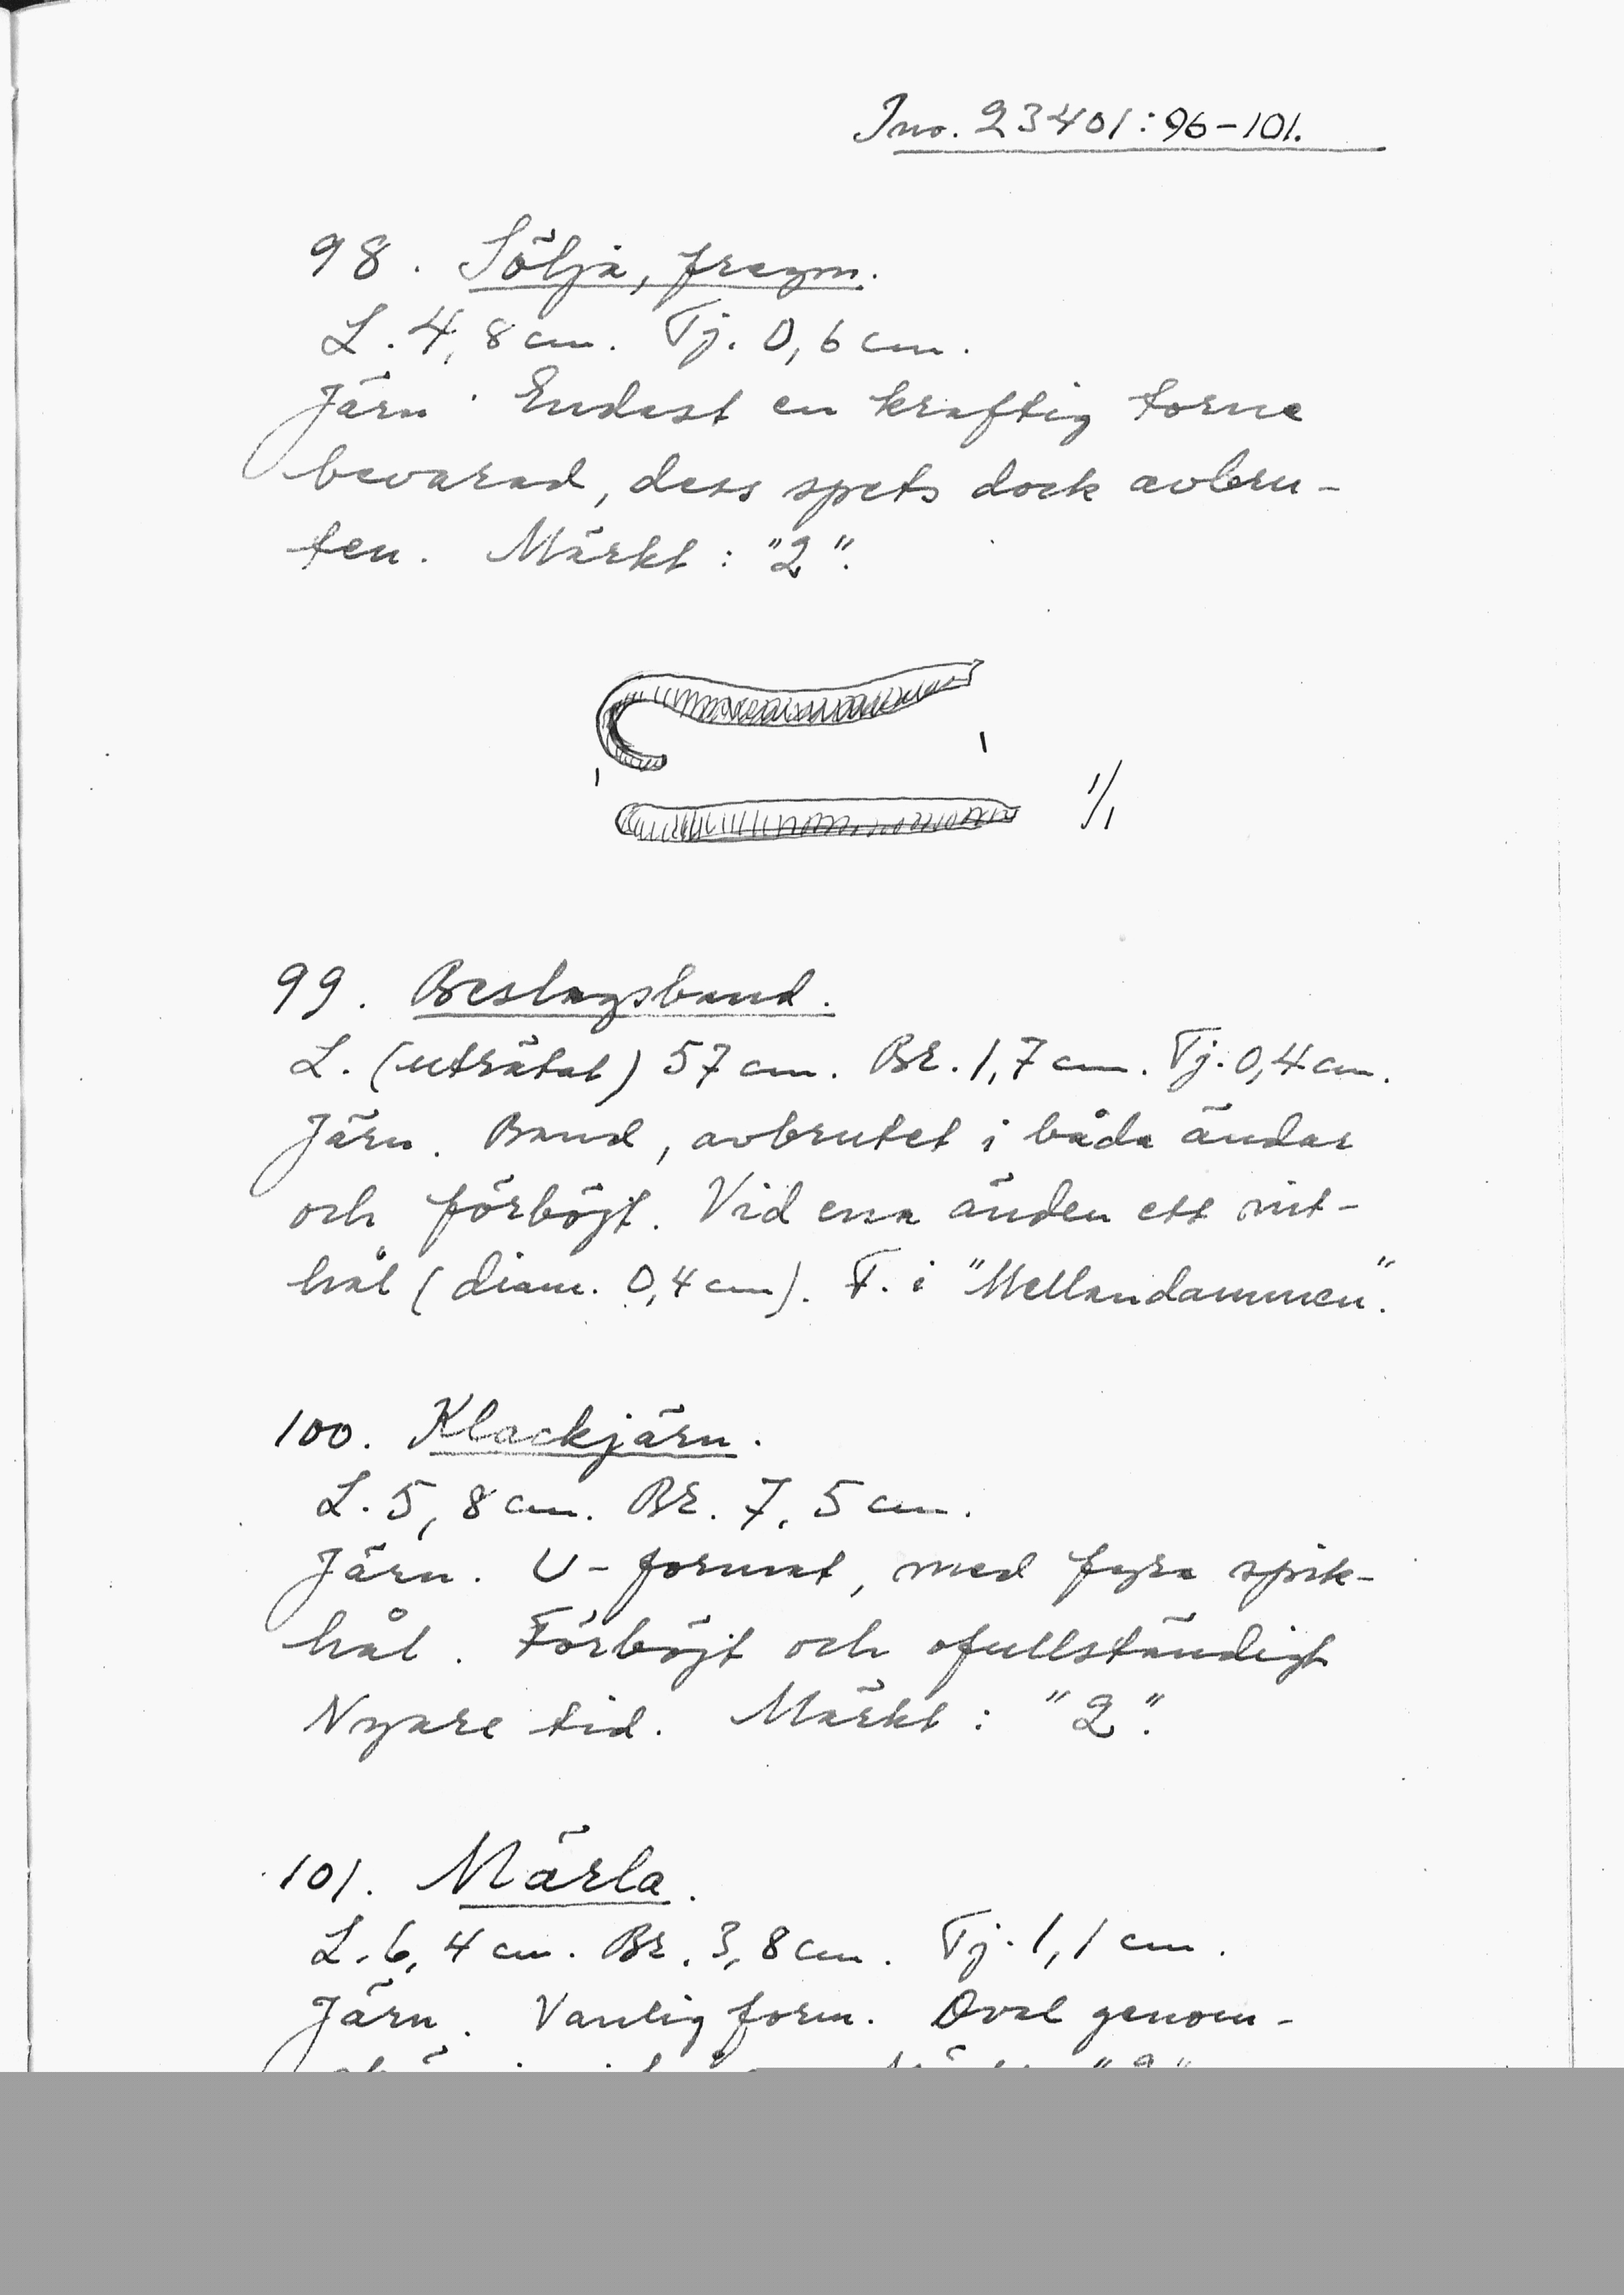 Inv. 23401:96-101.
98. Sölja, fragm.
L. 4,8 cm. Tj. 0,6 cm.
Järn. Endast en kraftig torne
bevarad, dess spets dock avbru-
ten. Märkt: "2".
1/1
99. Beslagsband.
L. (uträtat) 57 cm. Br. 1,7 cm. Tj. 0,4 cm.
Järn. Band, avbrutet i båda ändar
och förböjt. Vid ena änden ett nit-
hål (diam. 0,4 cm). F. i "Mellandammen".
100. Klackjärn.
L. 5,8 cm. Br. 7,5 cm.
Järn. U-format, med fyra spik-
hål. Förböjt och ofullständigt
Nyare tid. Märkt: "2".
101. Märla.
L. 6,4 cm. Br. 3,8 cm. Tj. 1,1 cm.
Järn. Vanlig form. Oval genom-